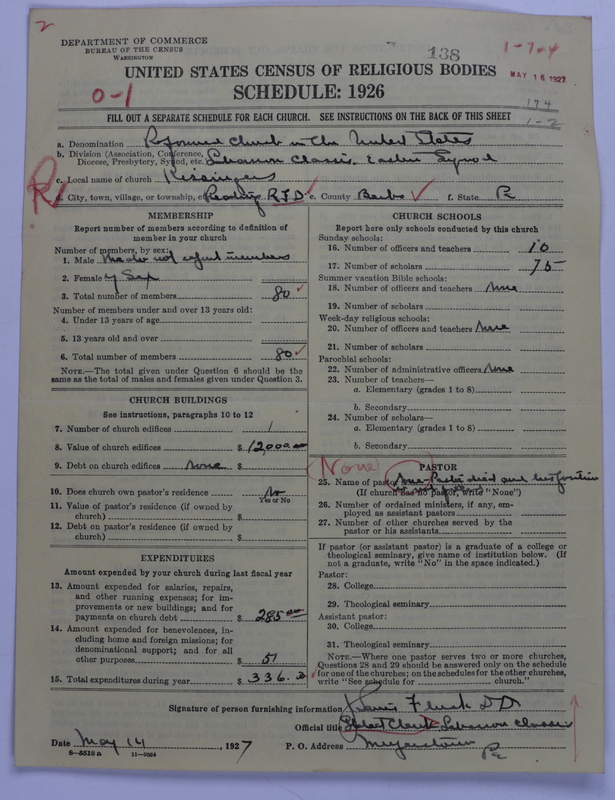 2
DEPARTMENT OF COMMERCE
BUREAU OF THE CENSUS
WASHINGTON
138
1-7-4
MAY 16 1927
UNITED STATES CENSUS OF RELIGIOUS BODIES
0-1
SCHEDULE: 1926
174
1-2
FILL OUT A SEPARATE SCHEDULE FOR EACH CHURCH. SEE INSTRUCTIONS ON THE BACK OF THIS SHEET
a. Denomination Reformed Church in the United States
b. Division (Association, Conference, Diocese, Presbytery, Synod, etc. Lebanon Classis, Eastern Synod
c. Local name of church Kissingers
R
d. City, town, village, or township, etc. Reading RFD e. County Berks f. State Pa
MEMBERSHIP
Report number of members according to definition of member in your church
Number of members, by sex:
1. Male members
2. Female by Sex
3. Total number of members 80
Number of members under and over 13 years old:
4. Under 13 years of age
5. 13 years old and over
6. Total number of members 80
NOTE.—The total given under Question 6 should be the same as the total of males and females given under Question 3.
CHURCH BUILDINGS
See instructions, paragraphs 10 to 12
7. Number of church edifices 1
8. Value of church edifices $ 12000.00
9. Debt on church edifices none $
10. Does church own pastor's residence no
Yes or No
11. Value of pastor's residence (if owned by church) $
12. Debt on pastor's residence (if owned by church) $
EXPENDITURES
Amount expended by your church during last fiscal year
13. Amount expended for salaries, repairs, and other running expenses; for improvements or new buildings; and for payments on church debt $ 285.00
14. Amount expended for benevolences, including home and foreign missions; for denominational support; and for all other purposes $ 51
15. Total expenditures during year $ 336.
CHURCH SCHOOLS
Report here only schools conducted by this church
Sunday schools:
16. Number of officers and teachers 10
17. Number of scholars 75
Summer vacation Bible schools:
18. Number of officers and teachers None
19. Number of scholars
Week-day religious schools:
20. Number of officers and teachers None
21. Number of scholars
Parochial schools:
22. Number of administrative officers None
23. Number of teachers—
a. Elementary (grades 1 to 8)
b. Secondary
24. Number of scholars—
a. Elementary (grades 1 to 8)
b. Secondary
None
PASTOR
25. Name of pastor None Pastor died and
(If church has no pastor, write "None")
26. Number of ordained ministers, if any, employed as assistant pastors
27. Number of other churches served by the pastor or his assistants
If pastor (or assistant pastor) is a graduate of a college or theological seminary, give name of institution below. (If not a graduate, write "No" in the space indicated.)
Pastor:
28. College
29. Theological seminary
Assistant pastor:
30. College
31. Theological seminary
NOTE.—Where one pastor serves two or more churches, Questions 28 and 29 should be answered only on the schedule for one of the churches; on the schedules for the other churches, write "See schedule for church."
Signature of person furnishing information Fluck DD
Official title Stated Clerk Lebanon Classis
Date May 14, 1927
P. O. Address Myerstown Pa
8—5518a 11—9024